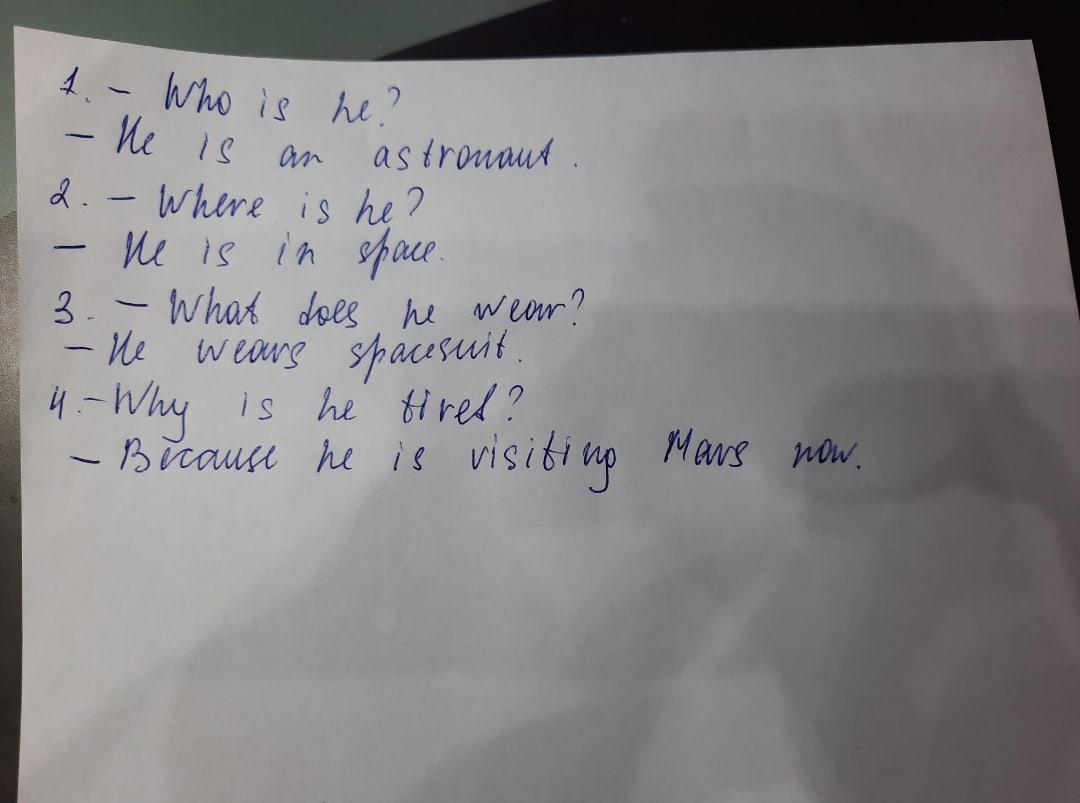 1. - Who is he?
- He is an astronaut.
2. - Where is he?
- He is in space.
3. - What does he wear?
- He wears spacesuit.
4. - Why is he tired?
- Because he is visiting Mars now.